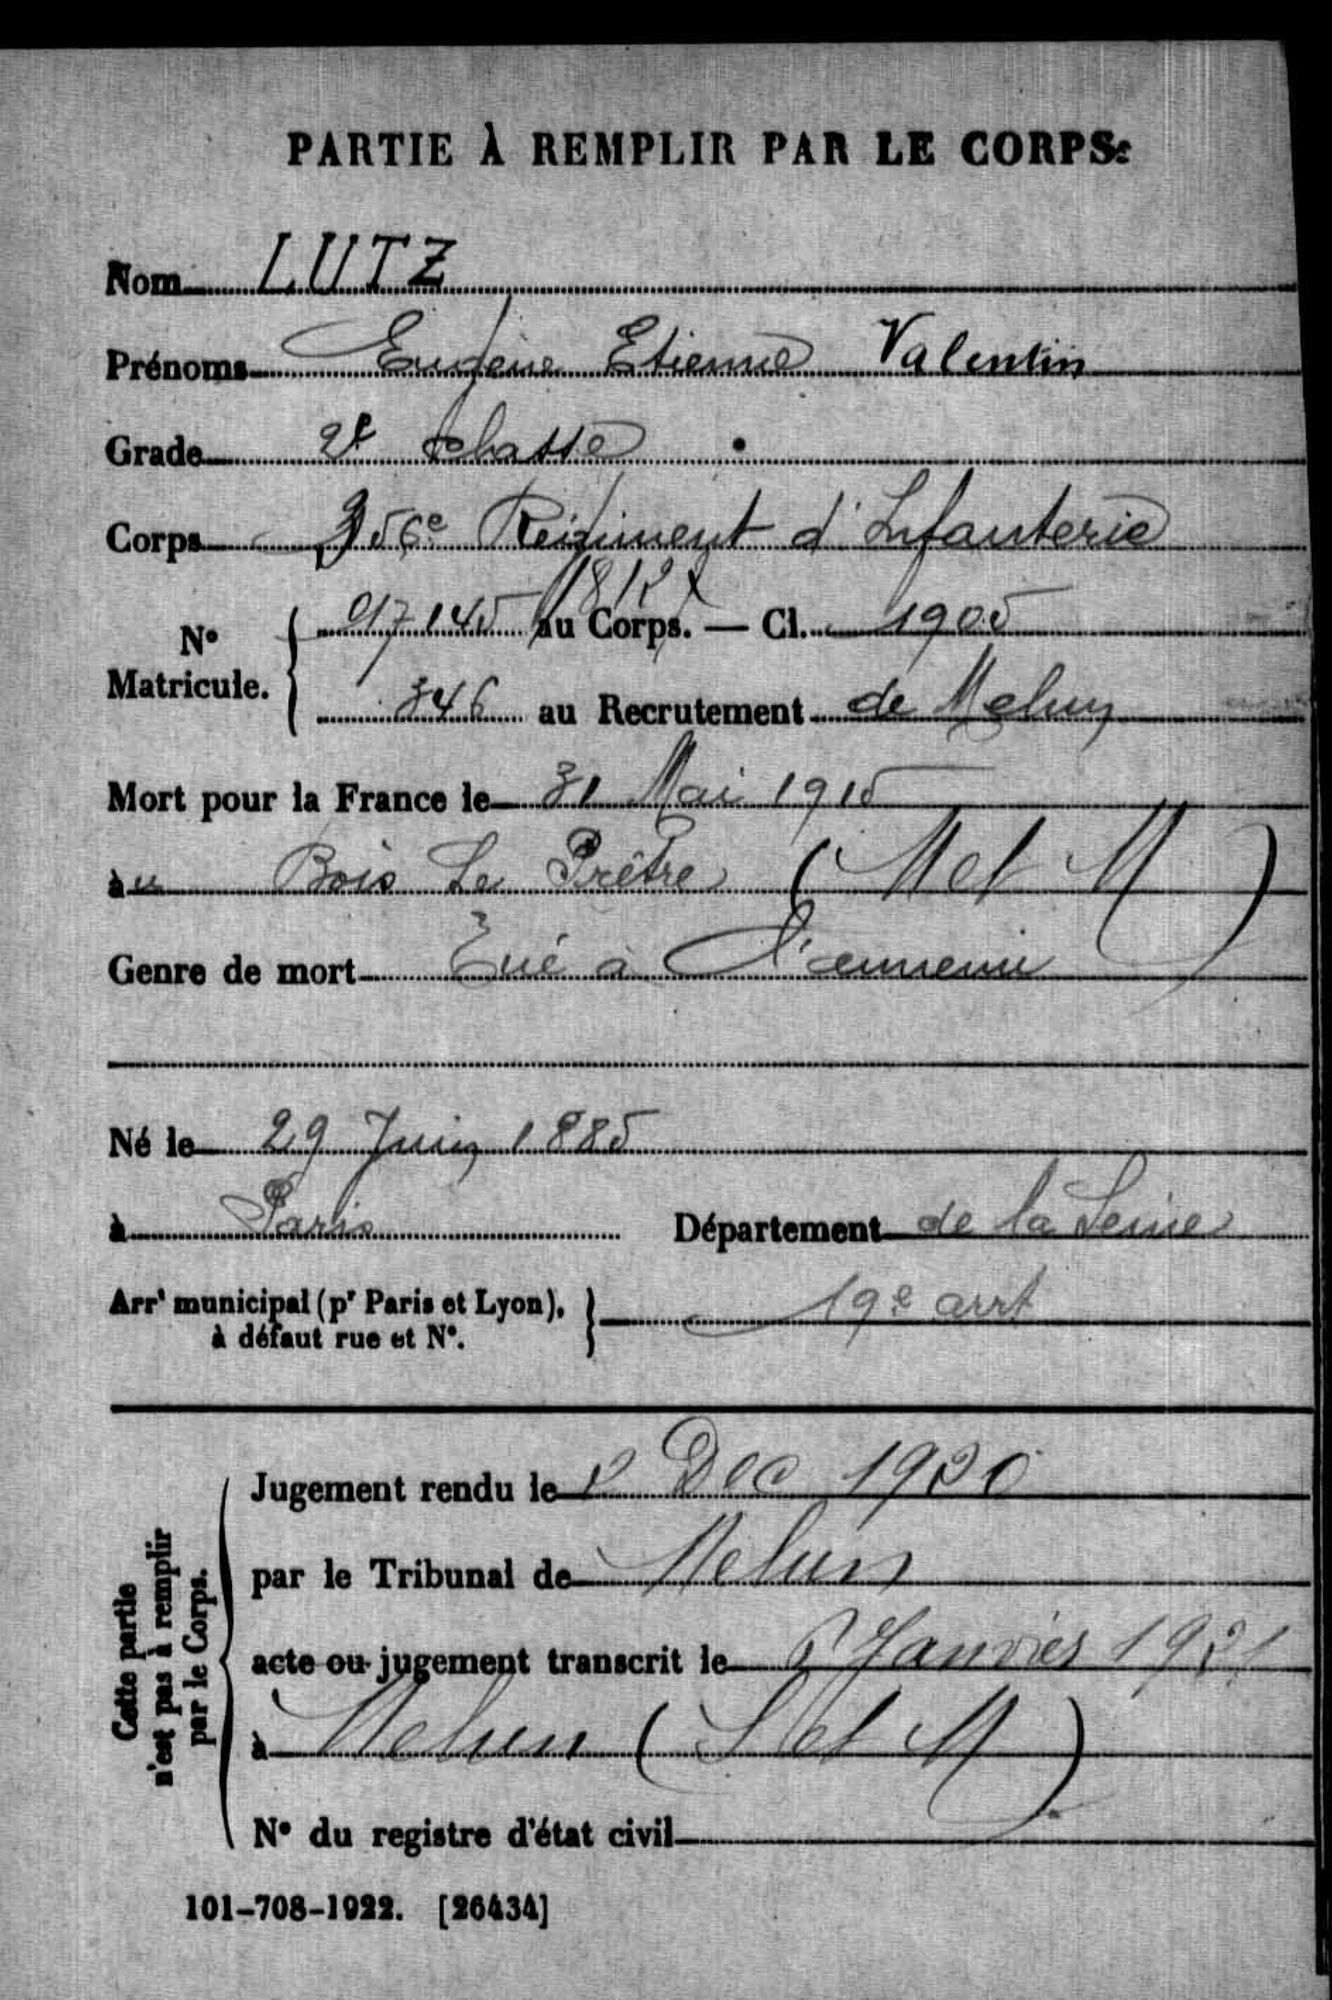 PARTIE À REMPLIR PAR LE CORPS.
Nom LUTZ
Prénoms Eugène Etienne Valentin
Grade 2e classe
Corps 356e Régiment d'Infanterie
1812
N° Matricule. { 017145 au Corps. — Cl. 1905
346 au Recrutement de Melun
Mort pour la France le 31 Mai 1915
àu Bois Le Prêtre (M et M)
Genre de mort Tué à l'ennemi
Né le 29 Juin 1885
à Paris Département de la Seine
Arrt municipal (pr Paris et Lyon), } 19e arrt
à défaut rue et N°.
Cette partie n'est pas à remplir par le Corps.
Jugement rendu le 2 Dec 1920
par le Tribunal de Melun
acte ou jugement transcrit le Janvier 1921
à Melun (S et M)
N° du registre d'état civil
101-708-1922. [26434]